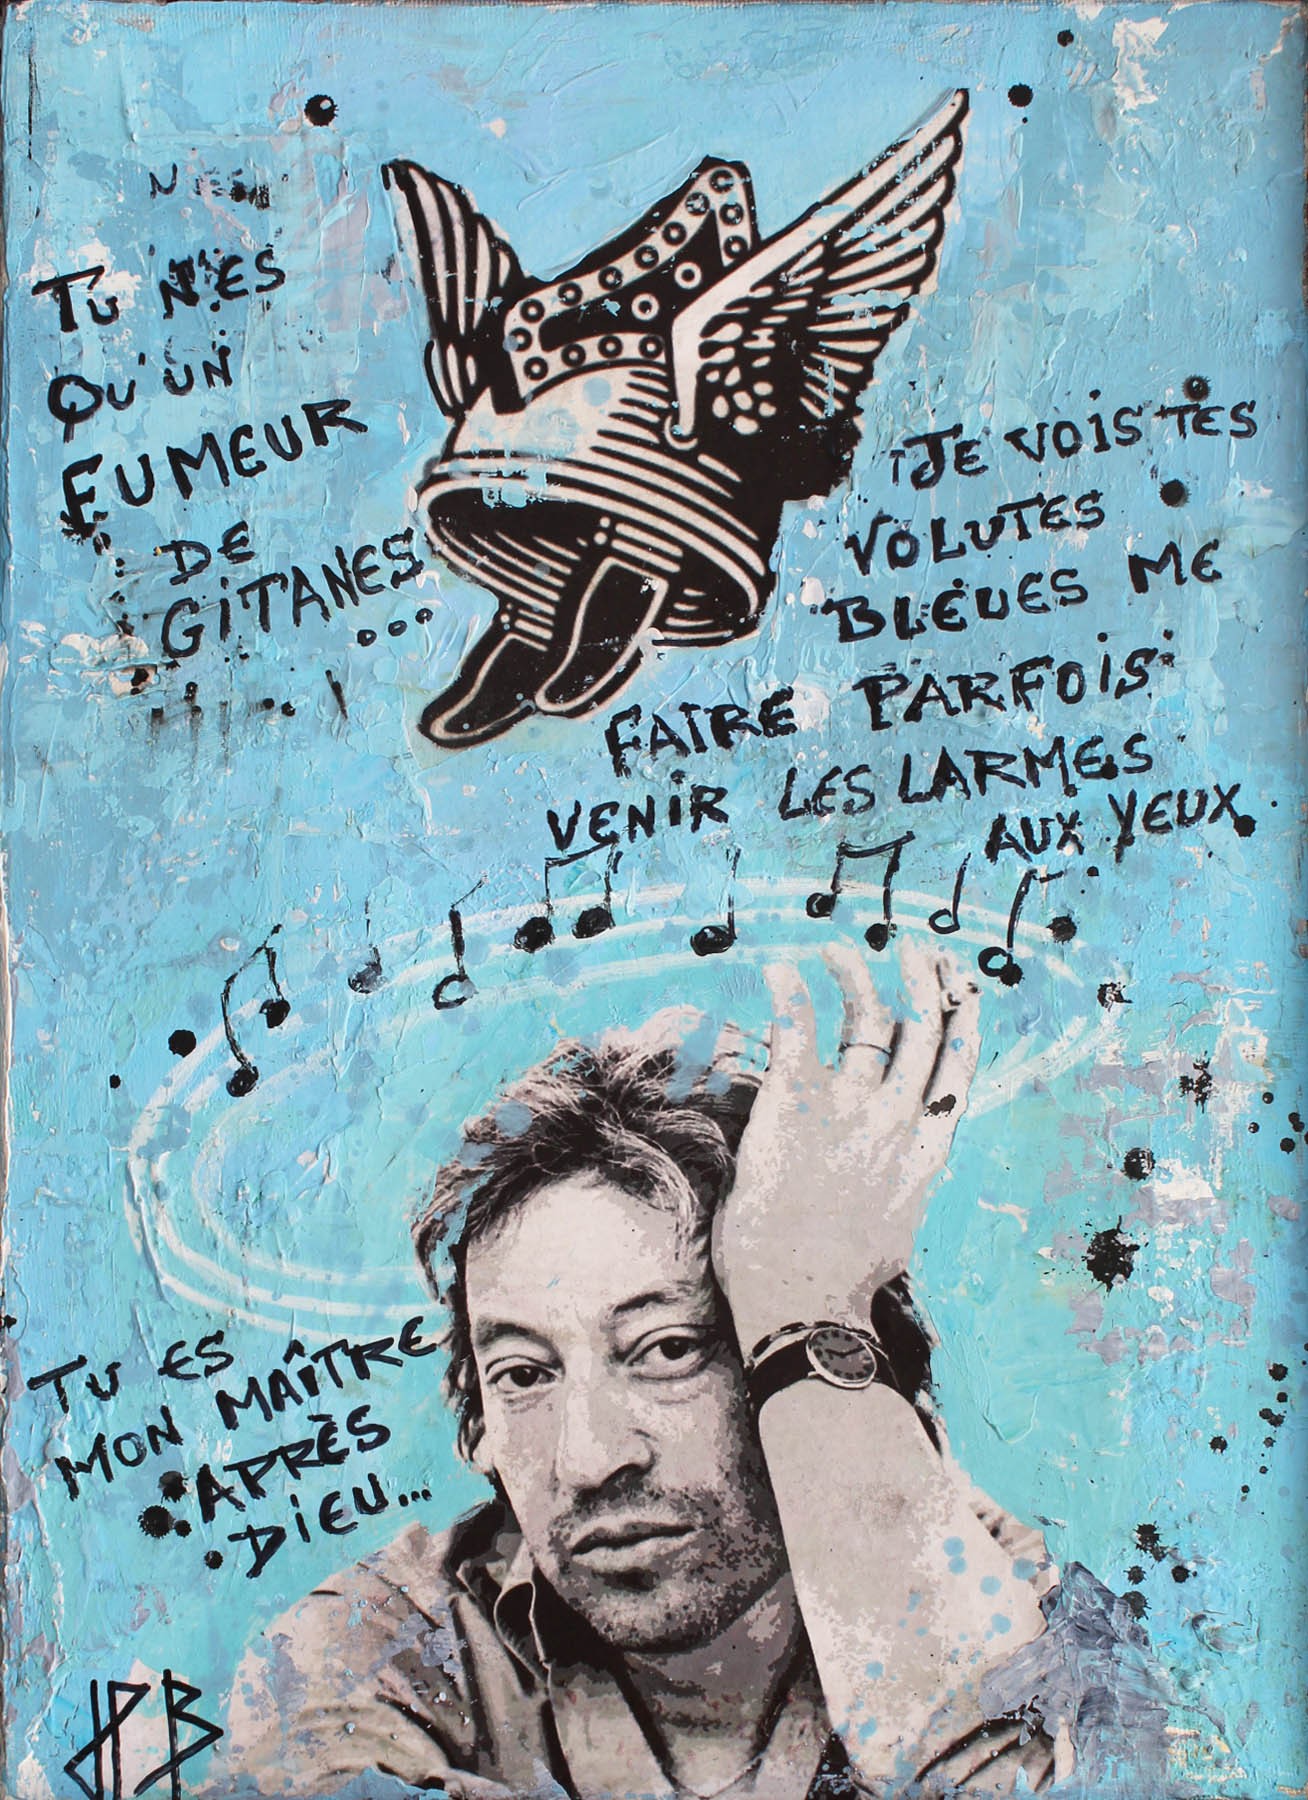 TU N'ES
QU'UN
FUMEUR
DE
GITANES...
JE VOIS TES
VOLUTES
BLEUES ME
FAIRE PARFOIS
VENIR LES LARMES
AUX YEUX
TU ES
MON MAÎTRE
APRÈS
DIEU...
JPB